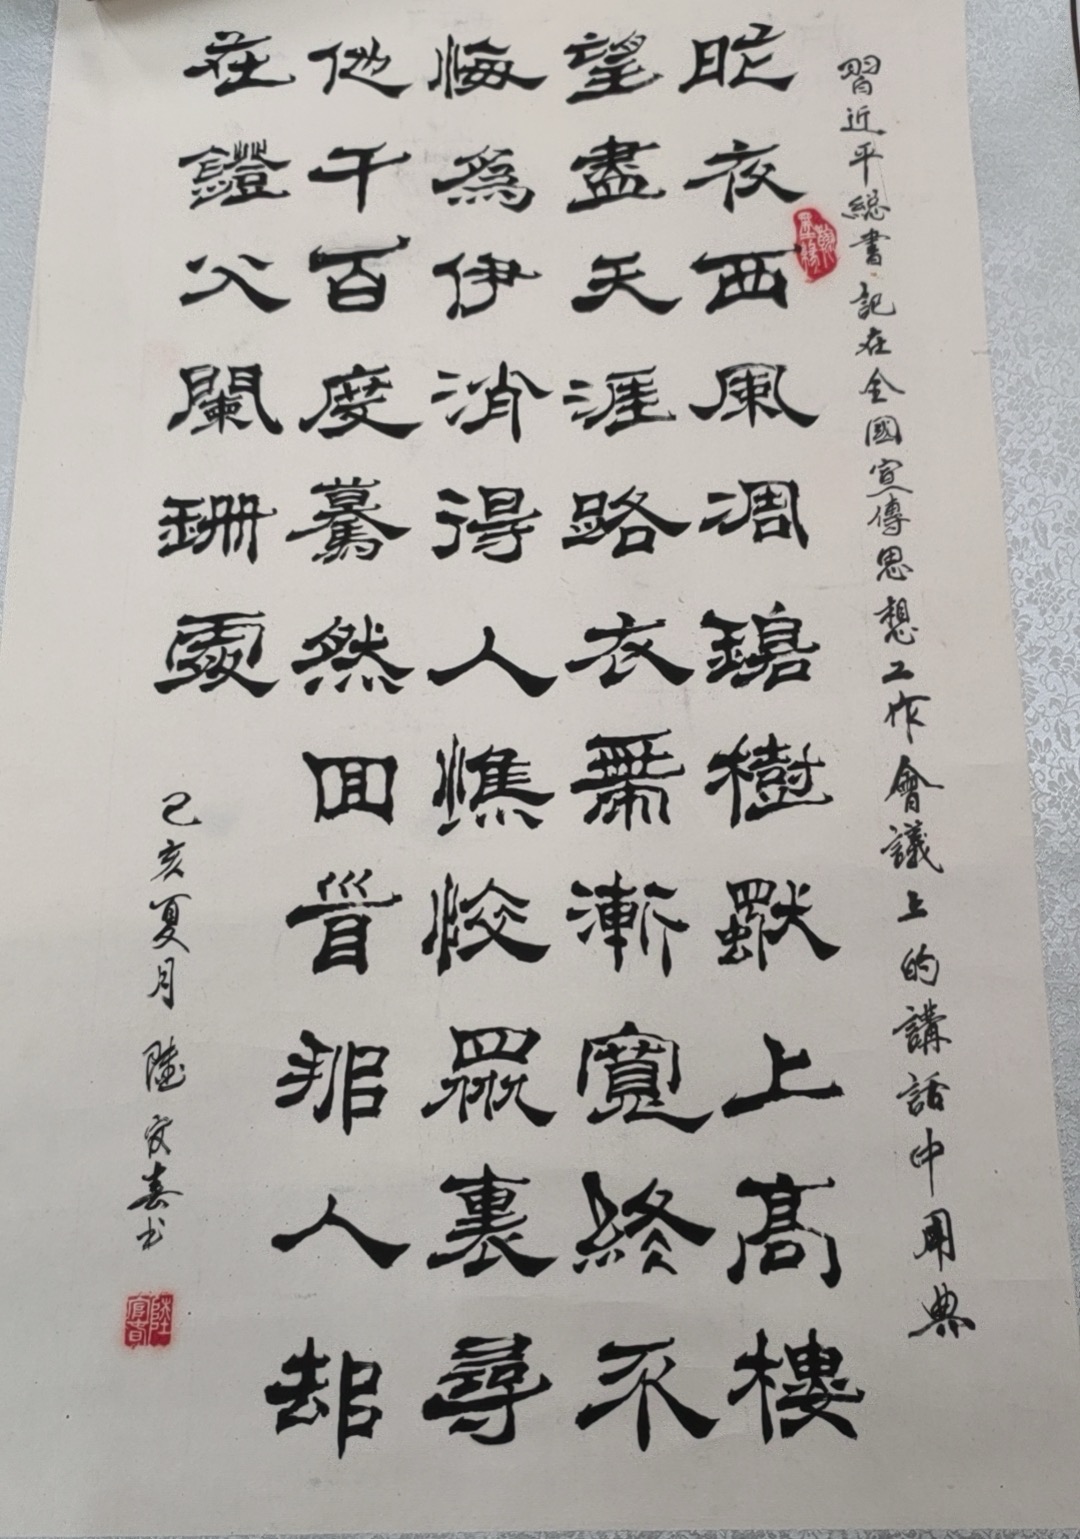 習近平總書記在全國宣傳思想工作會議上的講話中用典
昨夜西風凋碧樹獨上高樓
望盡天涯路衣帶漸寬終不
悔爲伊消得人憔悴眾裏尋
他千百度驀然回首那人却
在鐙火闌珊處
己亥夏月 陸春书